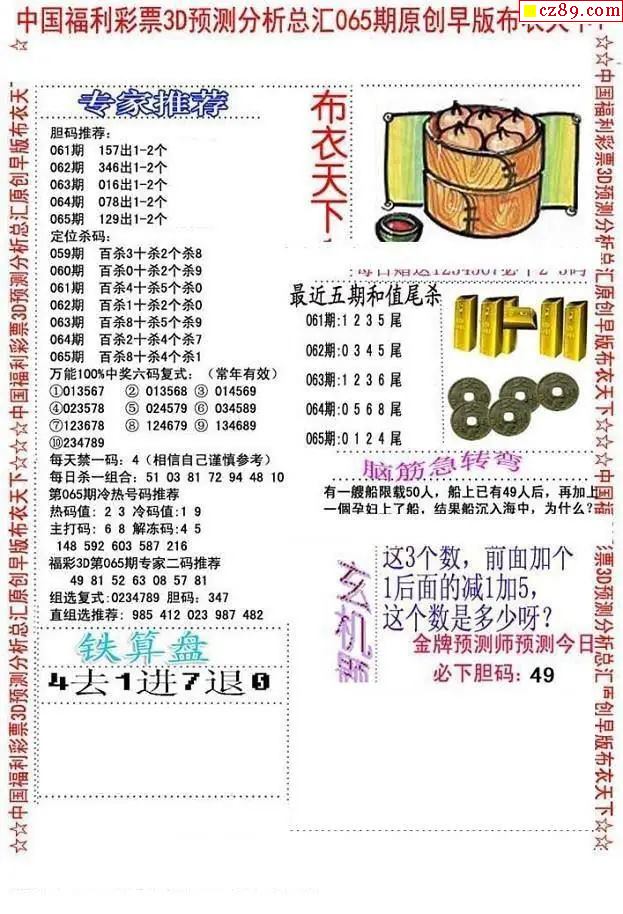 cz89.com
中国福利彩票3D预测分析总汇065期原创早版布衣天下
专家推荐
胆码推荐:
061期 157出1-2个
062期 346出1-2个
063期 016出1-2个
064期 078出1-2个
065期 129出1-2个
定位杀码:
059期 百杀3十杀2个杀8
060期 百杀0十杀2个杀9
061期 百杀4十杀5个杀0
062期 百杀1十杀2个杀0
063期 百杀8十杀5个杀9
064期 百杀2十杀4个杀7
065期 百杀8十杀4个杀1
万能100%中奖六码复式:(常年有效)
①013567 ②013568 ③014569
④023578 ⑤024579 ⑥034589
⑦123678 ⑧124679 ⑨134689
⑩234789
每天禁一码: 4(相信自己谨慎参考)
每日杀一组合: 51 03 81 72 94 48 10
第065期冷热号码推荐
热码值: 2 3 冷码值:1 9
主打码: 6 8 解冻码:4 5
148 592 603 587 216
福彩3D第065期专家二码推荐
49 81 52 63 08 57 81
组选复式:0234789 胆码: 347
直组选推荐: 985 412 023 987 482
铁算盘
4去1进7退0
布衣天下
每日赠送1234567必下2-3码
最近五期和值尾杀
061期:1 2 3 5 尾
062期:0 3 4 5 尾
063期:1 2 3 6 尾
064期:0 5 6 8 尾
065期:0 1 2 4 尾
脑筋急转弯
有一艘船限载50人, 船上已有49人后, 再加上
一個孕妇上了船, 结果船沉入海中, 为什么?
玄机
这3个数, 前面加个
1后面的减1加5,
这个数是多少呀?
金牌预测师预测今日
必下胆码: 49
☆☆中国福利彩票3D预测分析总汇原创早版布衣天下☆☆☆中国福利彩票3D预测分析总汇原创早版布衣天
☆☆中国福利彩票3D预测分析总汇原创早版布衣天下☆☆中国福
票3D预测分析总汇 原创早版布衣天下☆☆